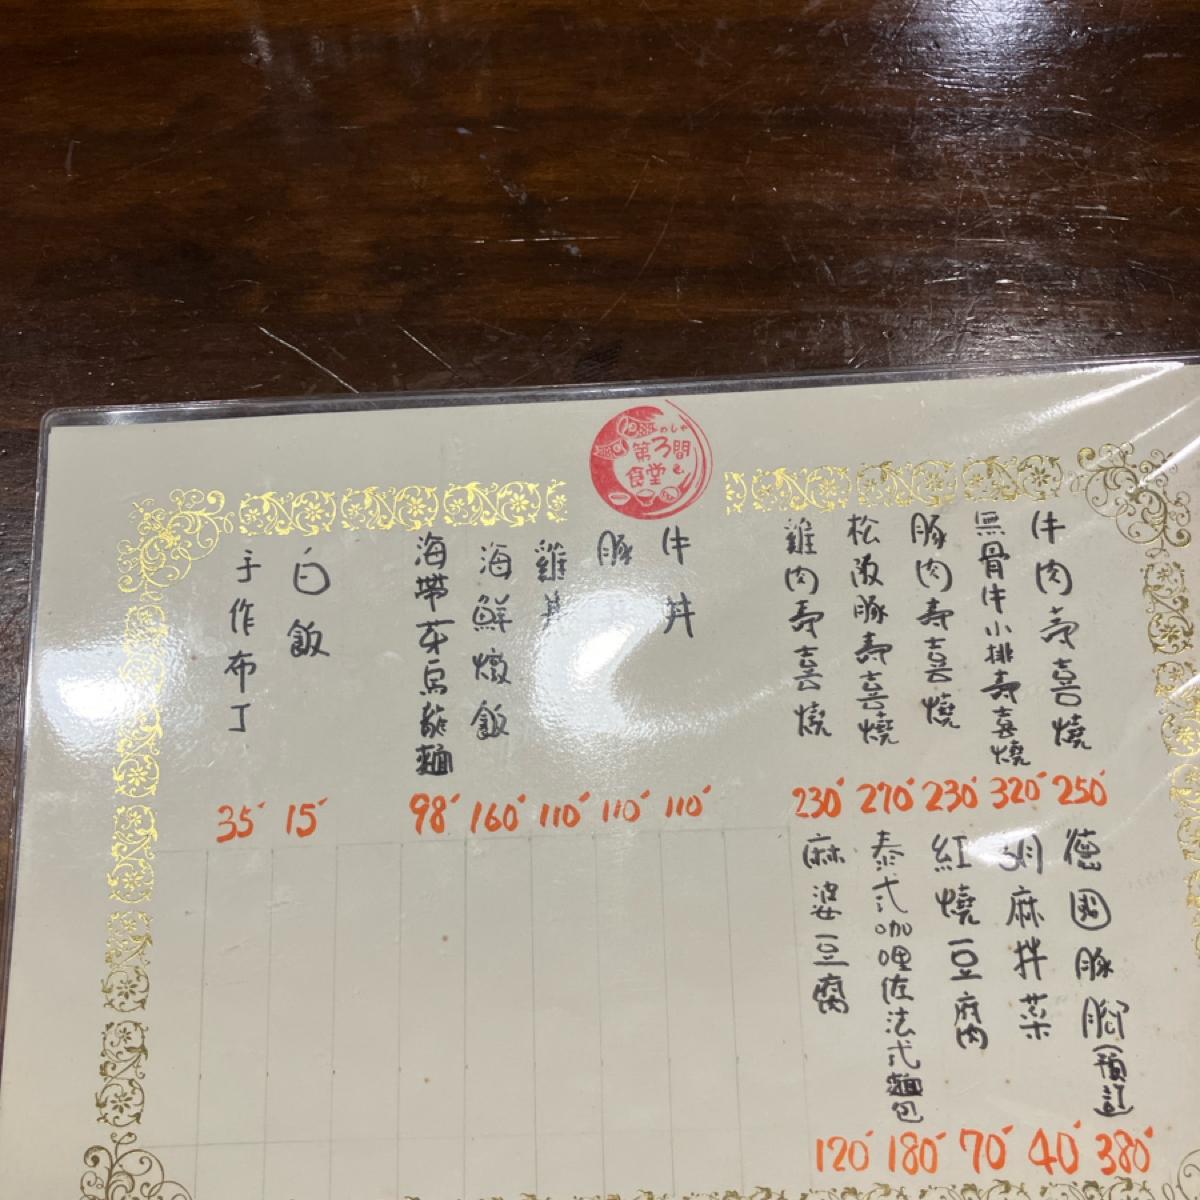 めしや
第3間
食堂
牛肉壽喜燒
250
無骨牛小排壽喜燒
320
豚肉壽喜燒
230
松阪豚壽喜燒
270
雞肉壽喜燒
230
牛丼
110
豚
110
雞丼
110
海鮮燉飯
160
海帶芽烏龍麵
98
白飯
15
手作布丁
35
德國豚腳(預訂
380
胡麻拌菜
40
紅燒豆腐
70
泰式咖哩佐法式麵包
180
麻婆豆腐
120